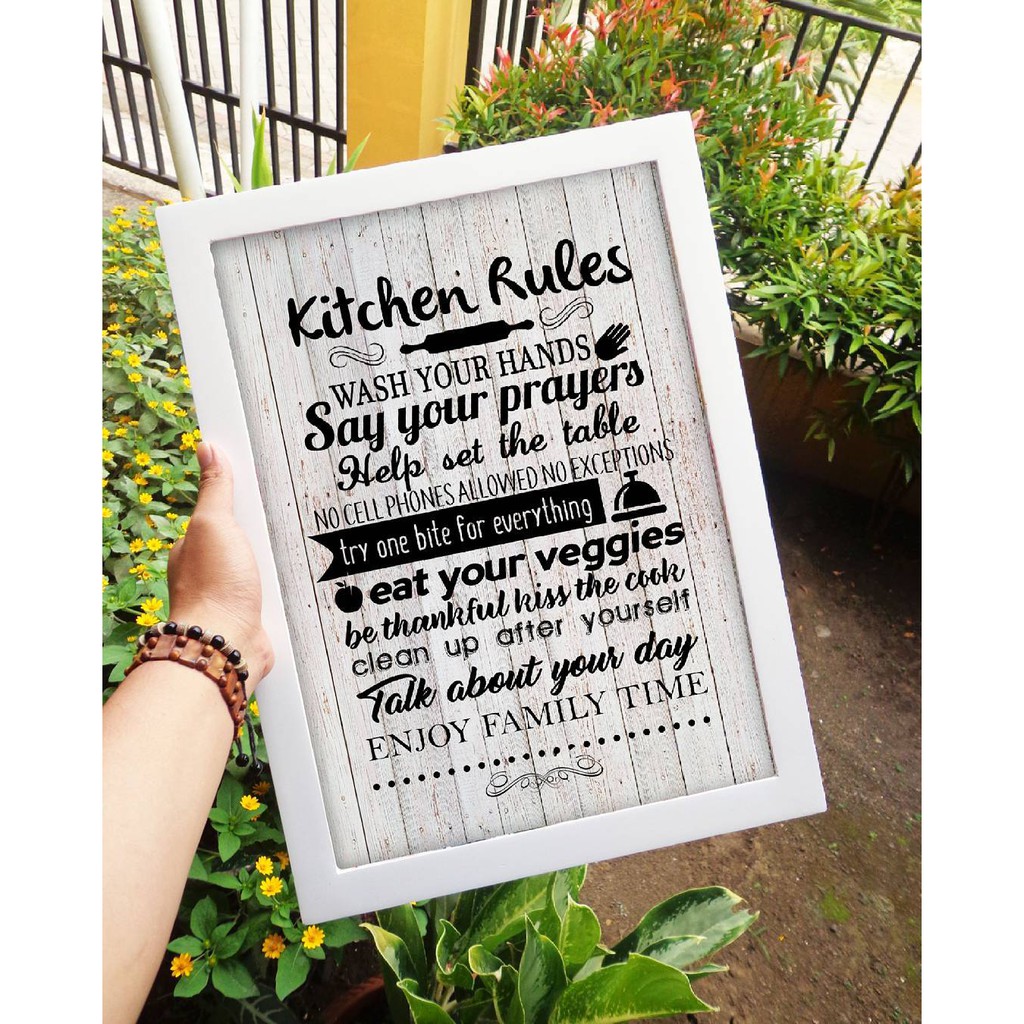 Kitchen Rules
WASH YOUR HANDS
Say your prayers
Help set the table
NO CELL PHONES ALLOWED NO EXCEPTIONS
try one bite for everything
eat your veggies
be thankful kiss the cook
clean up after yourself
Talk about your day
ENJOY FAMILY TIME